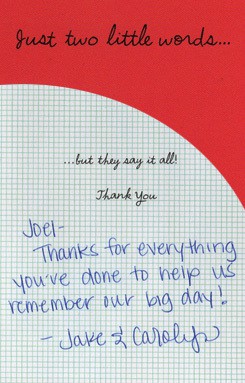 Just two little words...
...but they say it all!
Thank You
Joel-
Thanks for everything
you've done to help us
remember our big day!
- Jake & Carolyn